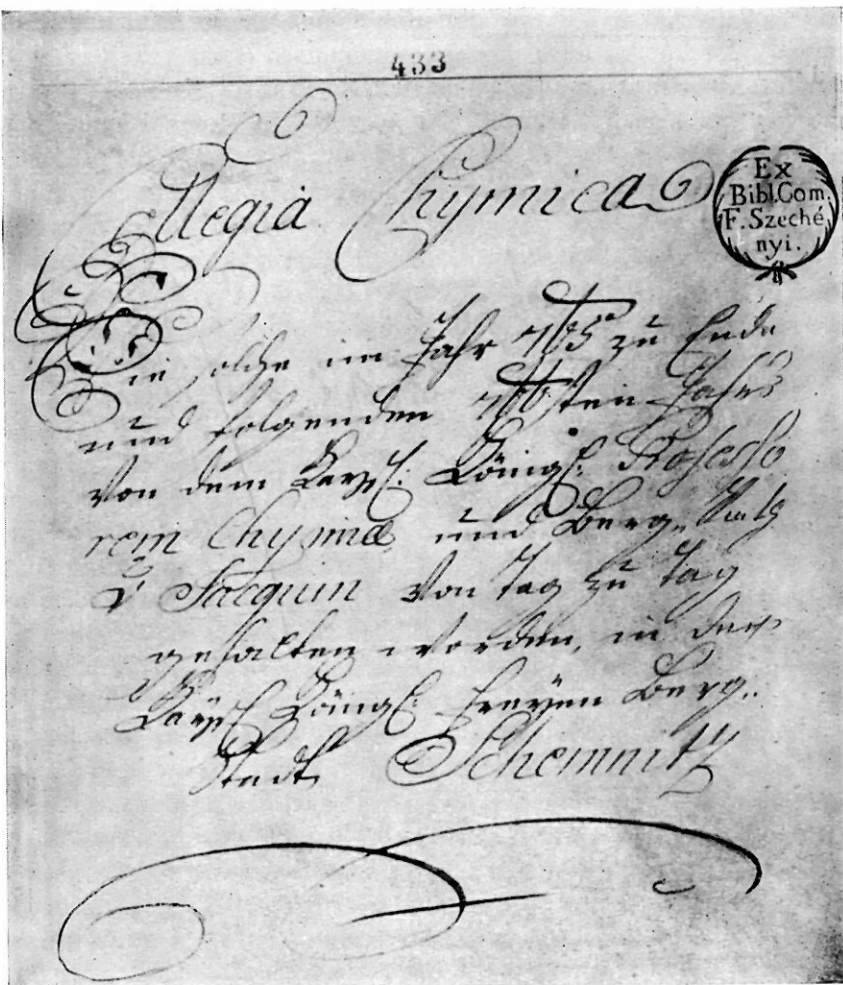 433
Collegia Chymica
Ex
Bibl. Com.
F. Szeché,
nyi.
Die solche im Jahr 765 zu Ende
und folgenden 766sten Jahrs
Von dem Kayß: Königl: Professo
rem Chymiæ, und Berg-Rath
v Jacquin Von Tag zu Tag
gehalten worden, in der
Kayß: Königl: freyen Berg..
Stadt Schemnitz